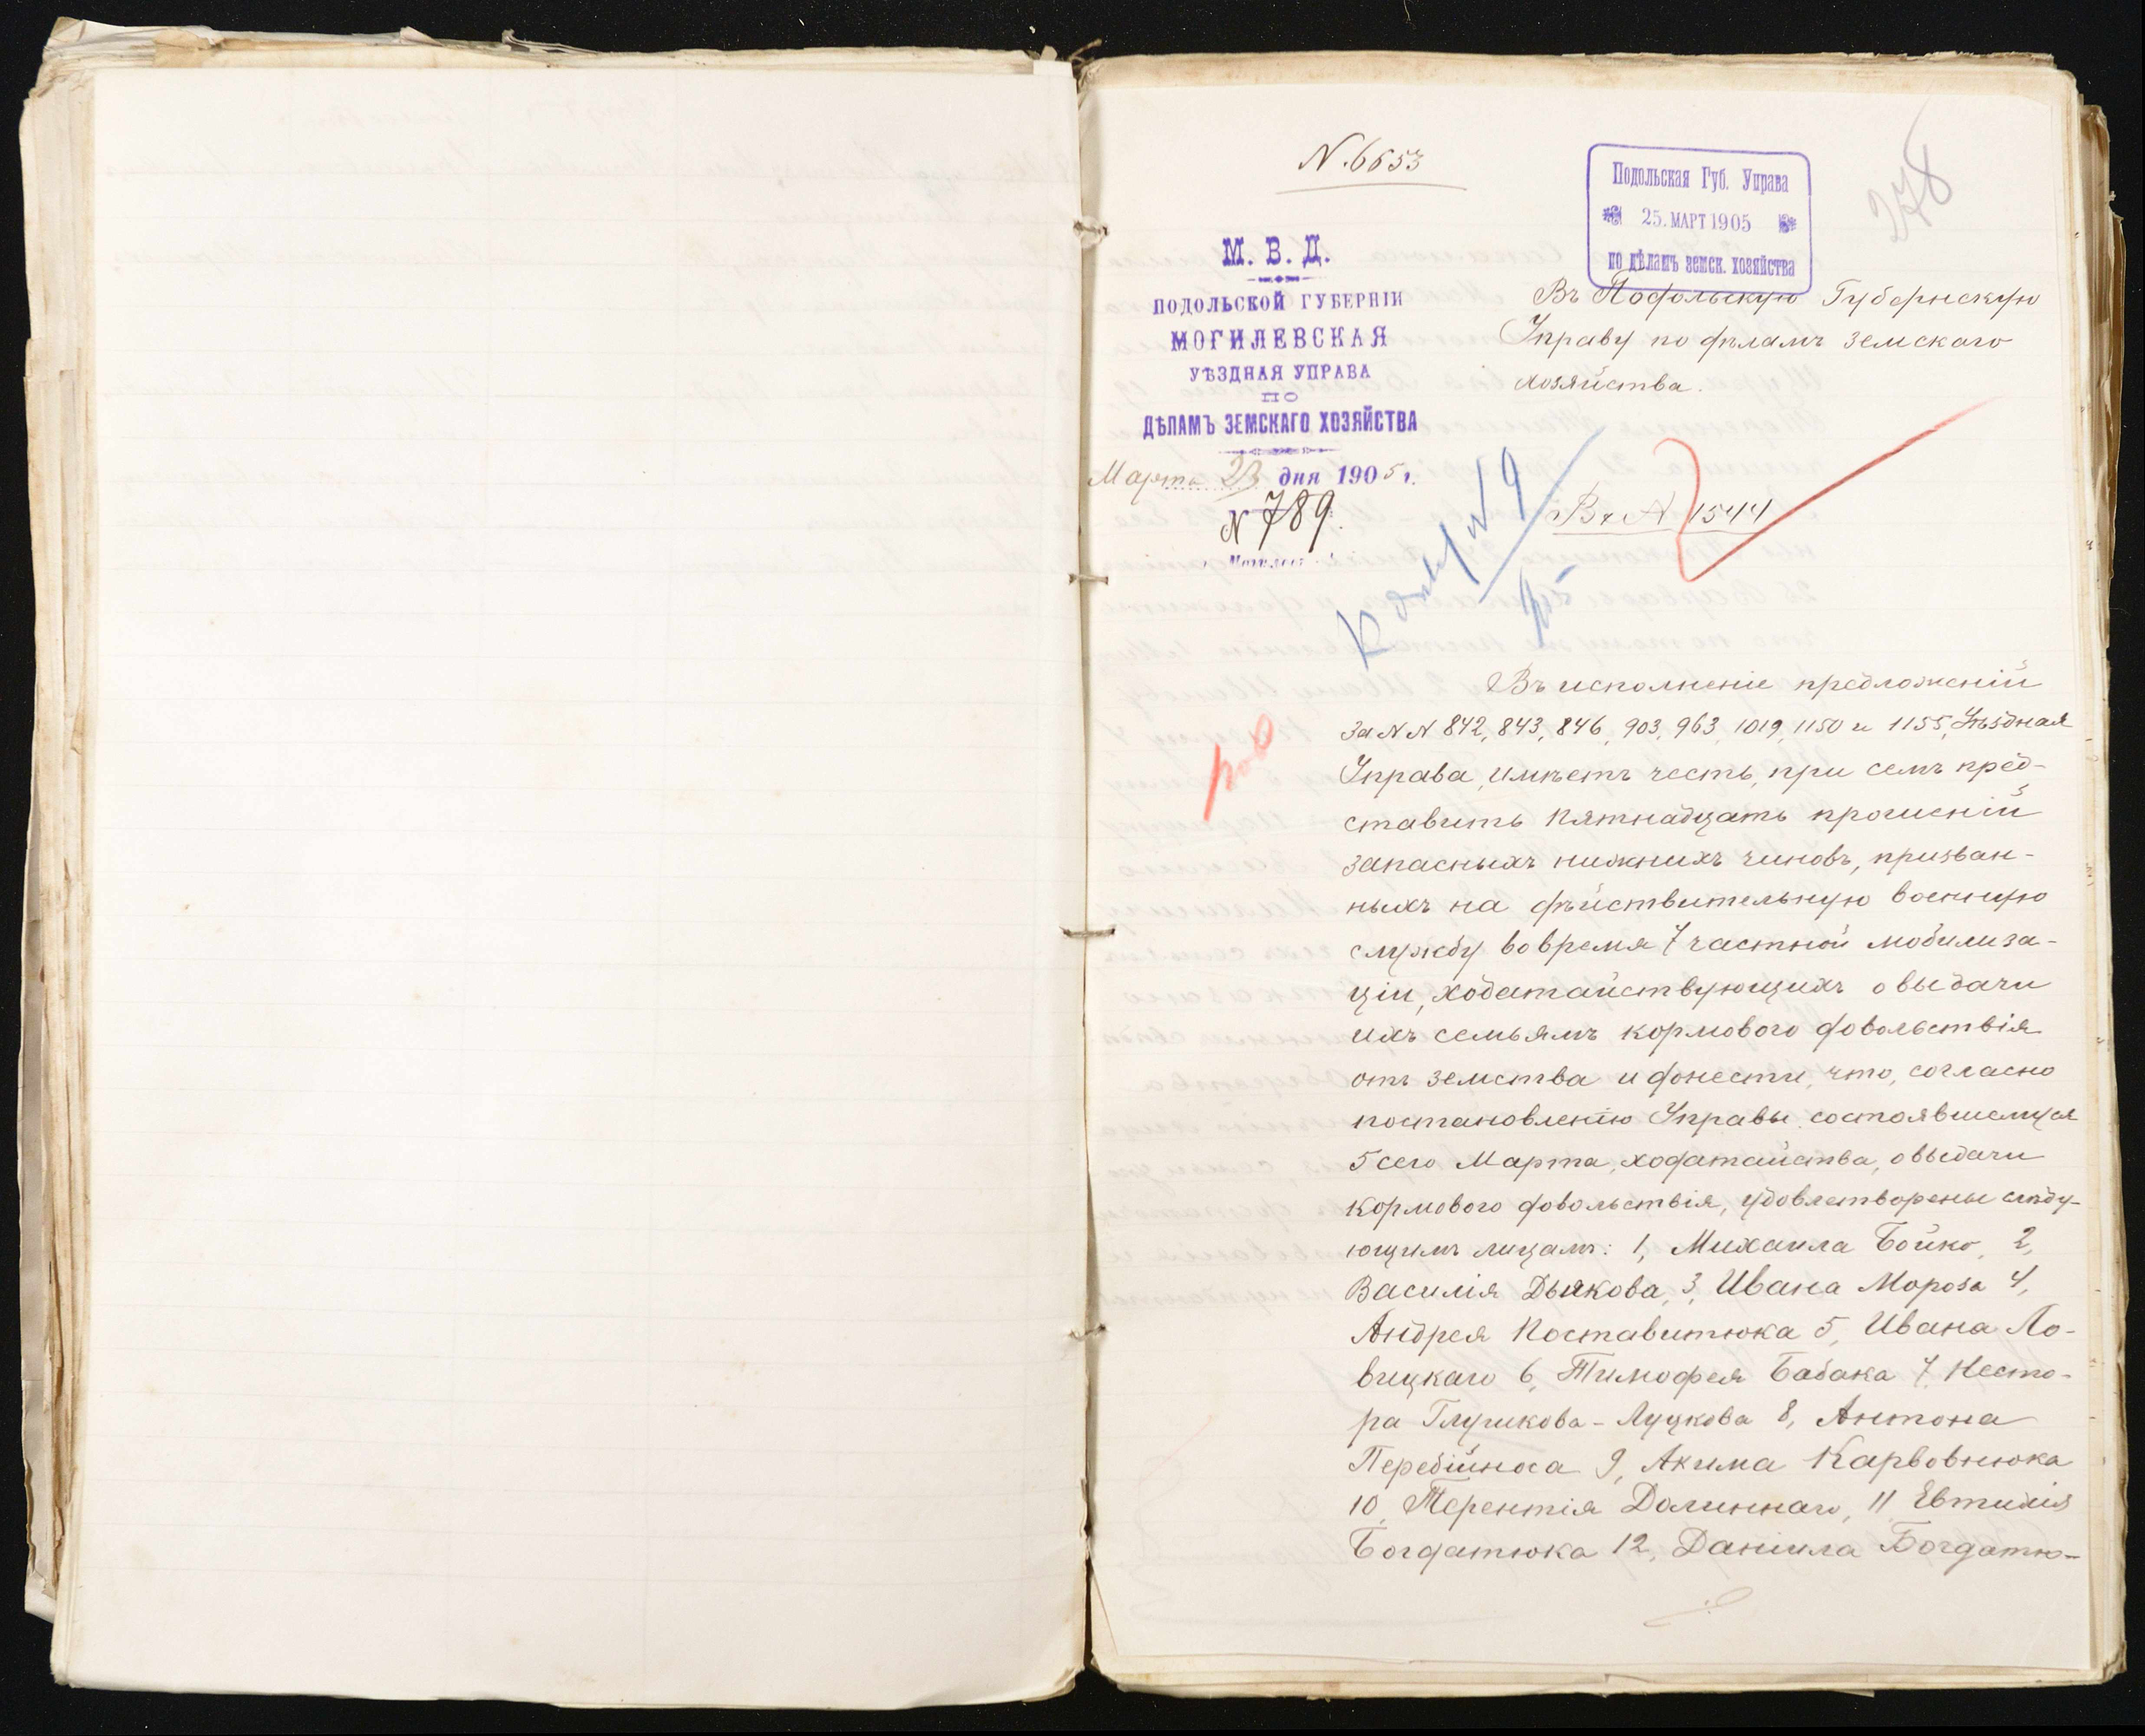 N. 6653
Подольская Губ. Управа
25. МАРТ 1905
по дѣламъ земск. хозяйства
278
М. В. Д.
ПОДОЛЬСКОЙ ГУБЕРНІИ
МОГИЛЕВСКАЯ
УѢЗДНАЯ УПРАВА
ПО
ДѢЛАМЪ ЗЕМСКАГО ХОЗЯЙСТВА
Марта 23 дня 1905 г.
N 789.
Въ Подольскую Губернскую
Управу по дѣламъ земскаго
хозяйства.
1544
Въ исполненіе предложеній
за N N 842, 843, 846, 903, 963, 1019, 1150 и 1155, Уѣздная
Управа, имѣетъ честь, при семъ пред-
ставить пятнадцать прошеній
запасныхъ нижнихъ чиновъ, призван-
ныхъ на дѣйствительную военную
службу во время 7 частной мобилиза-
ціи, ходатайствующихъ о выдачи
ихъ семьямъ кормового довольствія
отъ земства и донести, что, согласно
постановленію Управы состоявшемуся
5 сего Марта, ходатайства, о выдачи
кормового довольствія, удовлетворены слѣду-
ющимъ лицамъ: 1, Михаила Бойко, 2,
Василія Дьякова, 3, Ивана Мороза 4,
Андрея Поставитюка 5, Ивана Ло-
вицкаго 6, Тимофея Бабака 7, Несто-
ра Глушкова-Луцкова 8, Антона
Перебійноса 9, Акима Карвовнюка
10, Терентія Долиннаго, 11 Евтихія
Богдатюка 12, Даніила Богдатю-